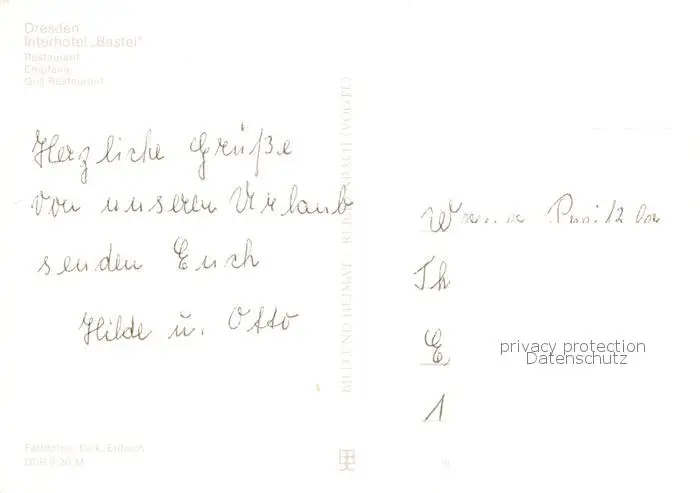 Dresden
Interhotel „Bastei"
Restaurant
Empfang
Grill Restaurant
Herzliche Grüße
von unseren Urlaub
senden Euch
Hilde u. Otto
BILD UND HEIMAT REICHENBACH (VOGTL)
Th
E
1
privacy protection
Datenschutz
DDR 0,20 M